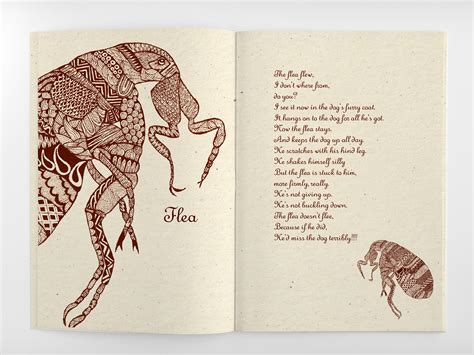 Flea
The flea flew,
I don't where from,
do you?
I see it now in the dog's furry coat.
It hangs on to the dog for all he's got.
Now the flea stays.
And keeps the dog up all day.
He scratches with his hind leg.
He shakes himself silly
But the flea is stuck to him,
more firmly, really.
He's not giving up.
He's not buckling down.
The flea doesn't flee,
Because if he did,
He'd miss the dog terribly!!!!